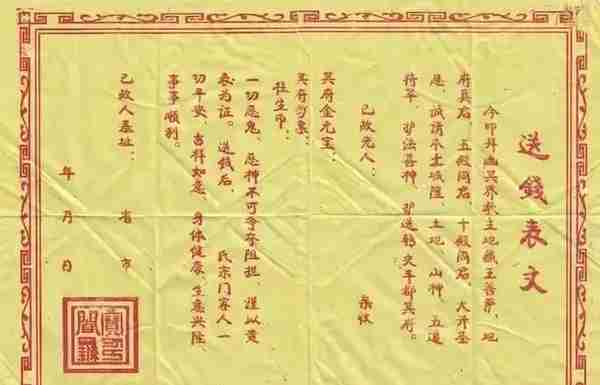 送錢表文
今叩拜幽冥界教主地藏王菩萨，地
府真君，五殿阎君，十殿阎君，大开圣
恩，诚请本土城隍，土地，山神，五道
将军，护法善神，护送钞交丰都冥府。
已故先人： 亲收
冥府金元宝：
冥府钞票：
往生币：
一切恶鬼，恶神不可夺阻拦，谨以黄
表为证。送钱后， 氏宗门家人一
切平安，吉祥如意，身体健康，生意兴隆，
事事顺利。
已故人墓址： 省 市
年 月 日